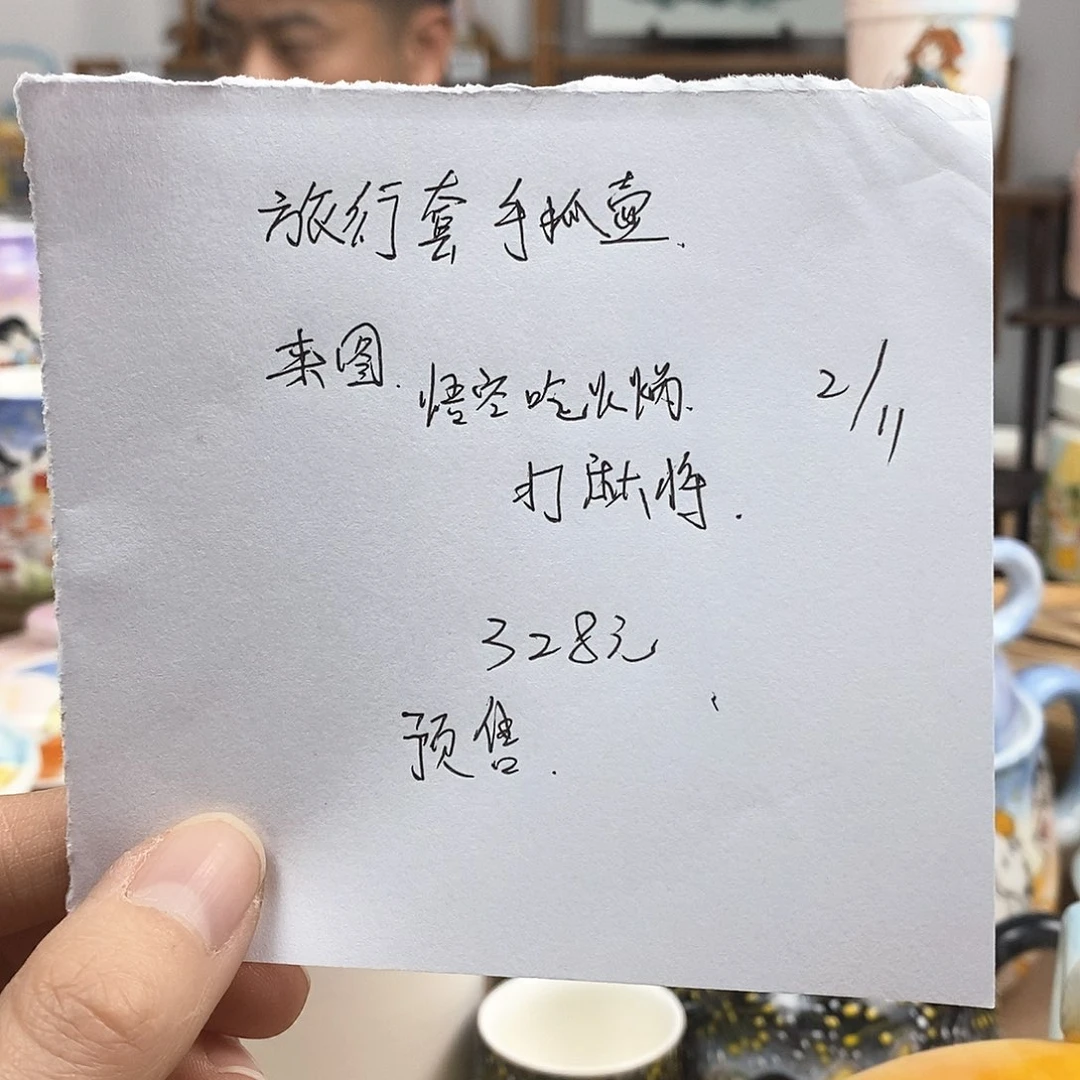 旅行套手抓壶.
来图. 悟空吃火锅.
2/11
打麻将.
328元
预售.